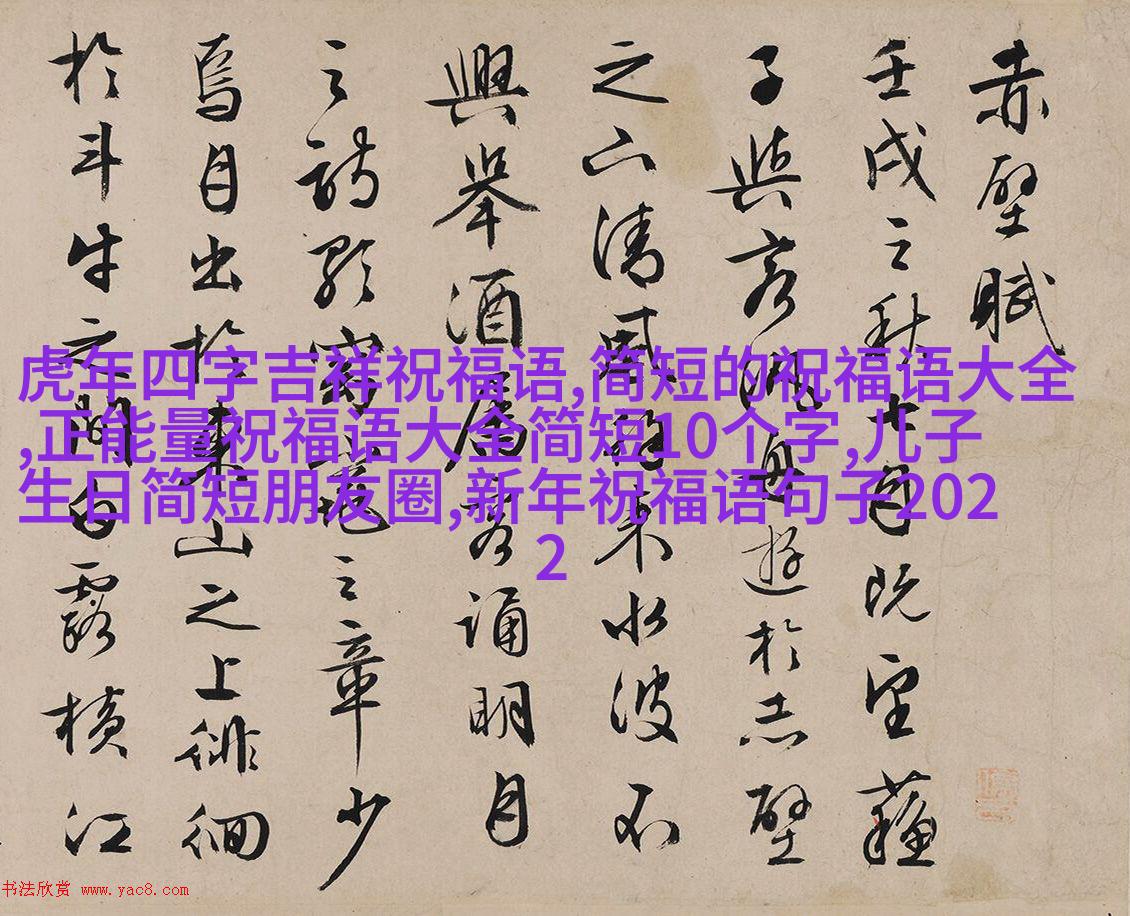 赤壁賦
壬戌之秋七月既望蘓
子與客泛舟遊於赤壁
之下清風徐來水波不
興舉酒屬客誦明月
之詩歌窈窕之章少
焉月出於東山之上徘徊
於斗牛之間白露橫江
虎年四字吉祥祝福语,简短的祝福语大全
,正能量祝福语大全简短10个字,儿子
生日简短朋友圈,新年祝福语句子202
2
书法欣赏 www.yac8.com